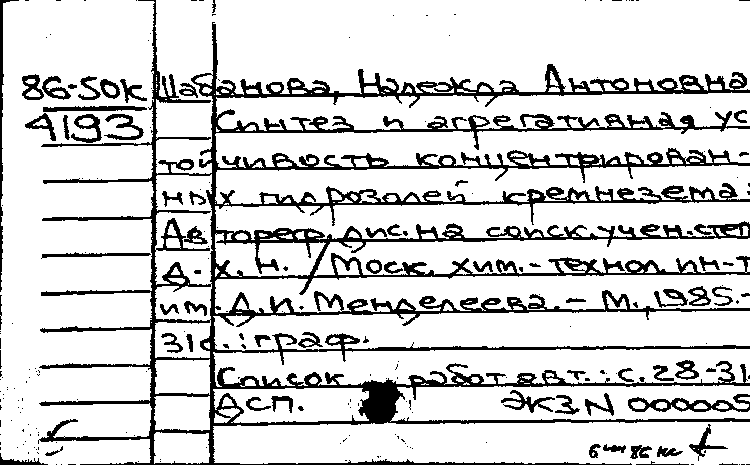 86-50к Шабанова, Надежда Антоновна
4193 Синтез и агрегативная ус
тойчивость концентрирован-
ных гидрозолей кремнезема:
Автореф. дис. на соиск. учен. степ
д. х. н. / Моск. хим.-технол. ин-т
им. Д.И. Менделеева. - М., 1985.-
31с.: граф.
Список работ авт.: с. 28-31.
ДСП. ЭКЗ N 000005